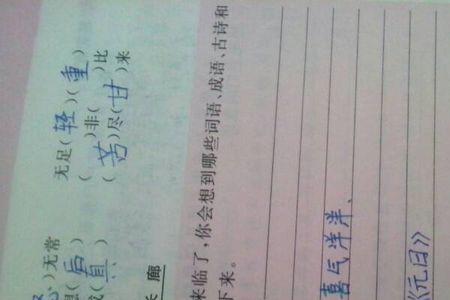 )无常 无足(轻)(重)
想( ) ( )非( )比
(真) (苦)尽(甘)来
廊
来临了,你会想到哪些词语、成语、古诗和
下来。
喜气洋洋、
《元日》